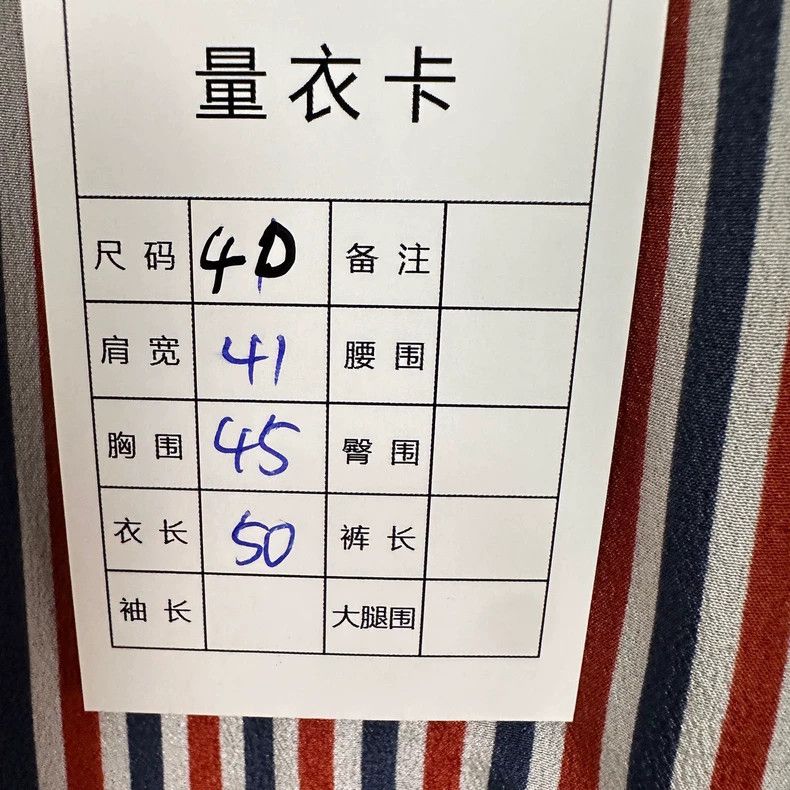 量衣卡
尺码 40 备注
肩宽 41 腰围
胸围 45 臀围
衣长 50 裤长
袖长 大腿围